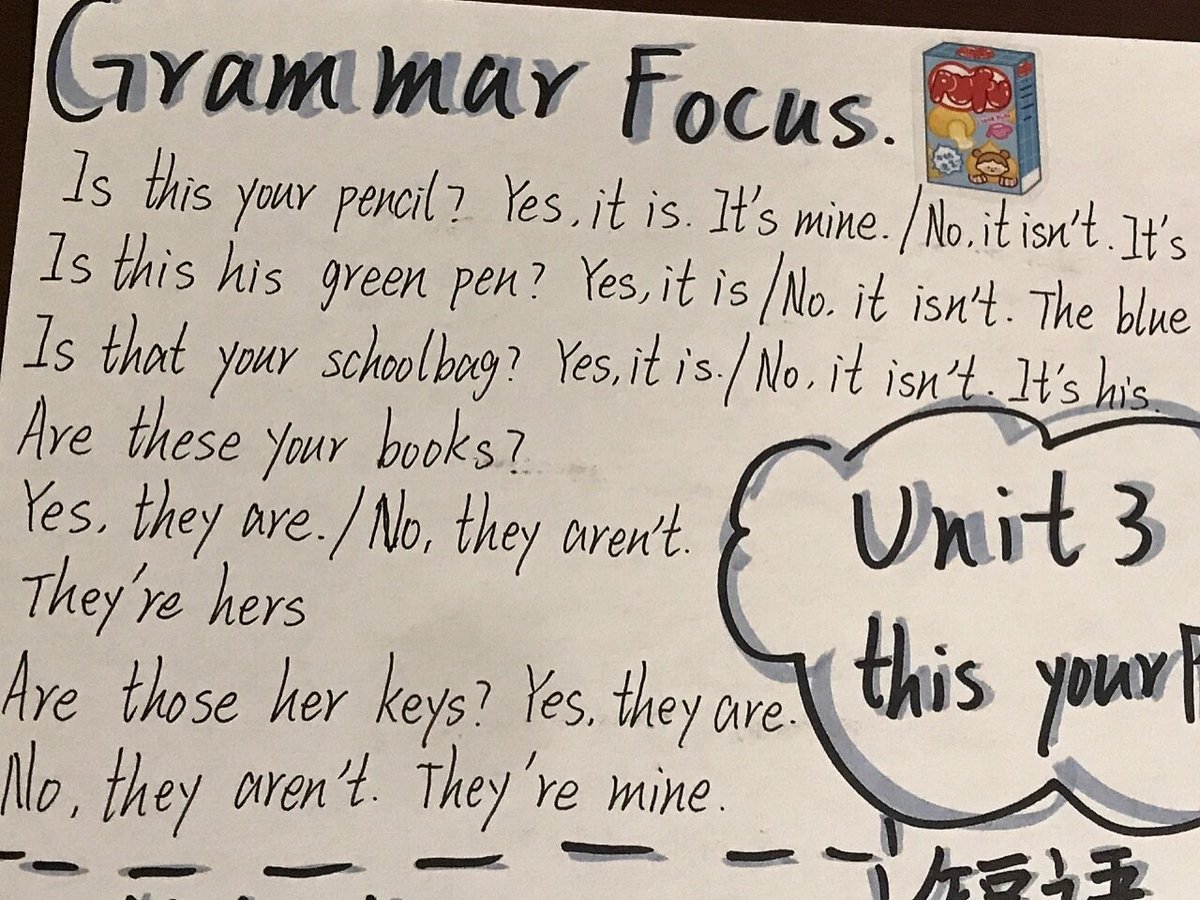 Grammar Focus.
Is this your pencil? Yes, it is. It's mine. / No, it isn't. It's
Is this his green pen? Yes, it is / No, it isn't. The blue
Is that your schoolbag? Yes, it is. / No, it isn't. It's his.
Are these your books?
Yes, they are. / No, they aren't.
They're hers
Are those her keys? Yes, they are.
No, they aren't. They're mine.
Unit 3
this your
短语